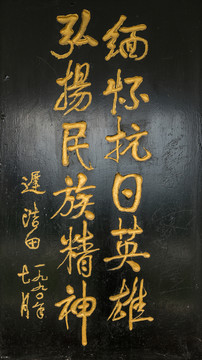 缅怀抗日英雄
弘揚民族精神
遲浩田
一九九〇年
七月